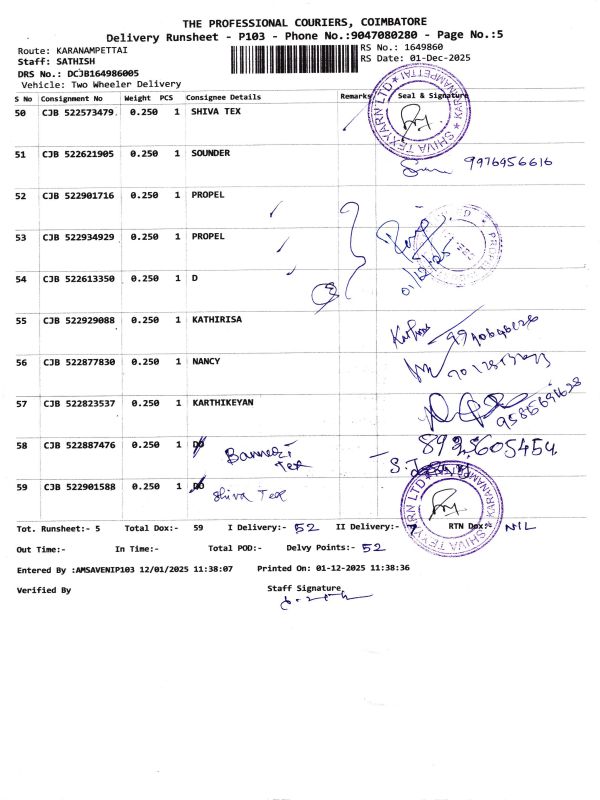 THE PROFESSIONAL COURIERS, COIMBATORE
Delivery Runsheet - P103 - Phone No.:9047080280 - Page No.:5
Route: KARANAMPETTAI
RS No.: 1649860
Staff: SATHISH
RS Date: 01-Dec-2025
DRS No.: DCJB164986005
Vehicle: Two Wheeler Delivery
S No Consignment No Weight PCS Consignee Details Remarks Seal & Signature
50 CJB 522573479 0.250 1 SHIVA TEX
SHIVA TEXYARN LTD * KARANAMPETTAI *
51 CJB 522621905 0.250 1 SOUNDER 9976956616
52 CJB 522901716 0.250 1 PROPEL
53 CJB 522934929 0.250 1 PROPEL
PROPEL
01/12/25
54 CJB 522613350 0.250 1 D
55 CJB 522929088 0.250 1 KATHIRISA
56 CJB 522877830 0.250 1 NANCY
57 CJB 522823537 0.250 1 KARTHIKEYAN 9585691628
58 CJB 522887476 0.250 1 DO Bannari Tex
59 CJB 522901588 0.250 1 DO Shiva Tex
SHIVA TEXYARN LTD * KARANAMPETTAI *
Tot. Runsheet:- 5 Total Dox:- 59 I Delivery:- 52 II Delivery:- RTN Dox:- NIL
Out Time:- In Time:- Total POD:- Delvy Points:- 52
Entered By :AMSAVENIP103 12/01/2025 11:38:07 Printed On: 01-12-2025 11:38:36
Verified By Staff Signature